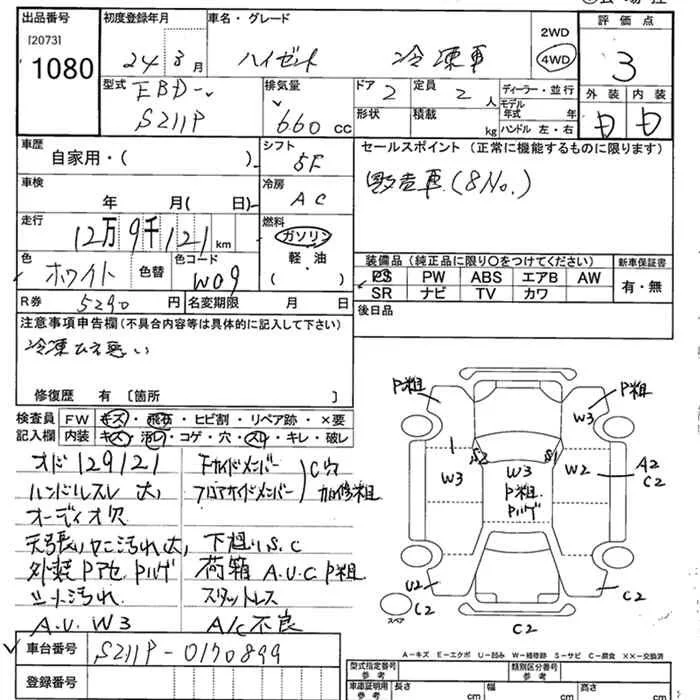 出品番号 初度登録年月 車名・グレード 2WD 評価点
[2073] 24 年 3月 ハイゼット 冷凍車 4WD 3
1080
型式 EBD- 排気量 ドア 2 定員 2 人 ディーラー・並行 外装 内装
S211P 660 cc 形状 積載 kg モデル年式 年 ハンドル 左・右
車歴 シフト セールスポイント (正常に機能するものに限ります)
自家用・( ) 5F
改造車 (8No.)
車検 冷房
年 月( 日) AC
走行 燃料
12万9千121 km ガソリン
色 色替 色コード 軽・油 装備品 (純正品に限り〇をつけてください) 新車保証書
ホワイト W09 ( ) PS PW ABS エアB AW 有・無
SR ナビ TV カワ
R券 5290 円 名変期限 月 日 後日品
注意事項申告欄(不具合内容等は具体的に記入して下さい)
冷凍ひえ悪い
修復歴 有 〔箇所 〕
検査員 FW キズ・飛石・ヒビ割・リペア跡・×要
記入欄 内装 キズ・汚レ・コゲ・穴・スレ・キレ・破レ
オド129121 下サイドメンバー C穴
ハンドルスレ大、 フロアサイドメンバー 加修粗
オーディオ欠
天張リヤニ汚れ大、 下廻りS.C
外装P アセ Pハゲ 荷箱 A.U.C P粗
シート汚れ スタットレス
A.U.W3 A/C不良
車台番号 S211P-0170899
登録番号
P粗 P粗
W3
S2 S1
W3 W3 W2 A2
P粗 C2
Pハゲ
U2 C2
C2 スペア
C2
A-キズ E-エクボ U-凹み W-補修跡 S-サビ C-腐食 ××-交換済
型式指定番号 参考 類別区分番号 参考
車庫証明用 参考 長さ cm 幅 cm 高さ cm